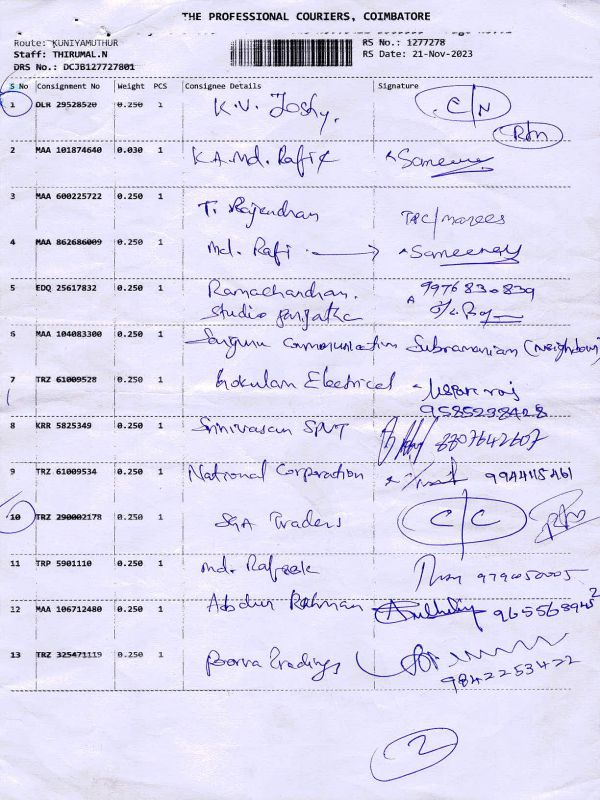 THE PROFESSIONAL COURIERS, COIMBATORE
Route: KUNIYAMUTHUR
Staff: THIRUMAL.N
DRS No.: DCJB127727801
RS No.: 1277278
RS Date: 21-Nov-2023
S No Consignment No Weight PCS Consignee Details Signature
1 DLR 29528520 0.250 1 K.V. Joshy. C/N
Rtn
2 MAA 101874640 0.030 1 K.A.Md. Rafik
3 MAA 600225722 0.250 1 T. Rajendran
4 MAA 862686009 0.250 1 Md. Rafi
5 EDQ 25617832 0.250 1 Ramachandran. 9976830839
Studio
6 MAA 104083300 0.250 1 Communication Subramaniam (Neighbour)
7 TRZ 61009528 0.250 1 Gokulam Electrical
9585238428
8 KRR 5825349 0.250 1 Srinivasan 8807642607
9 TRZ 61009534 0.250 1 National Corporation
10 TRZ 290002178 0.250 1 SGA Traders C/C Rtn
11 TRP 5901110 0.250 1 Md. Rafeek
12 MAA 106712480 0.250 1 Abdur Rahman
13 TRZ 325471119 0.250 1 Poorva Tradings
9842253422
2